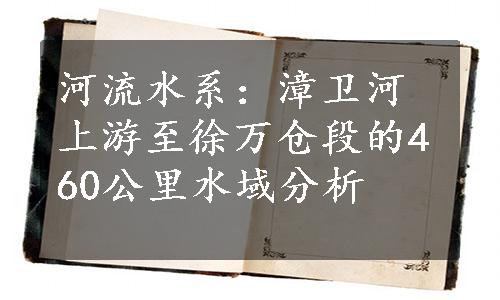 河流水系：漳卫河
上游至徐万仓段的4
60公里水域分析